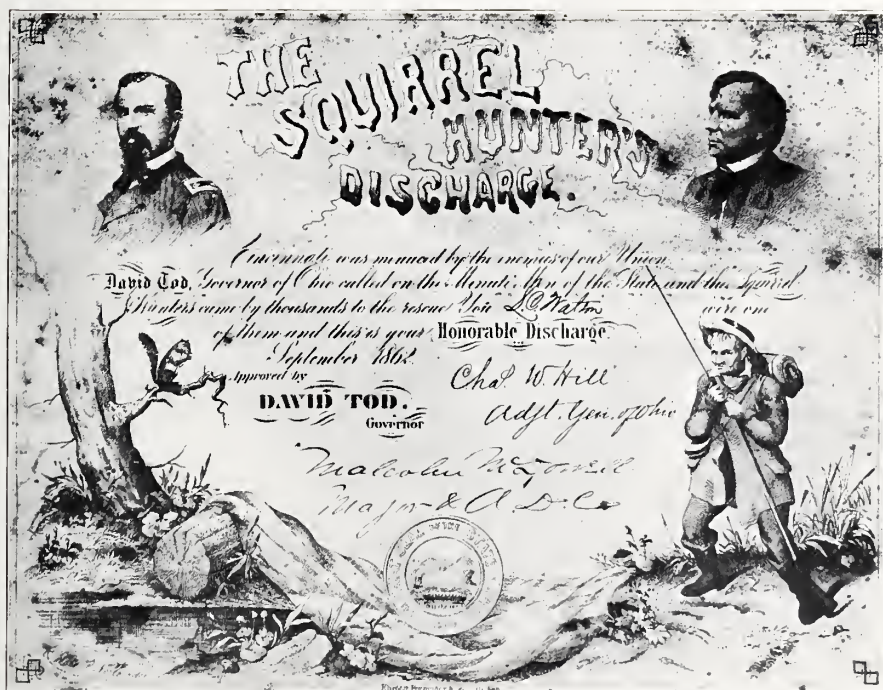 THE
SQUIRREL
HUNTER'S
DISCHARGE.
Cincinnati was menaced by the enemies of our Union
David Tod, Governor of Ohio called on the Minute Men of the State and the Squirrel
Hunters came by thousands to the rescue You L.C. Watson were one
of them and this is your Honorable Discharge
September 1862.
Approved by
DAVID TOD.
Governor
Chas. W. Hill
Adjt. Gen. of Ohio
Malcolm McDowell
Major & A D C